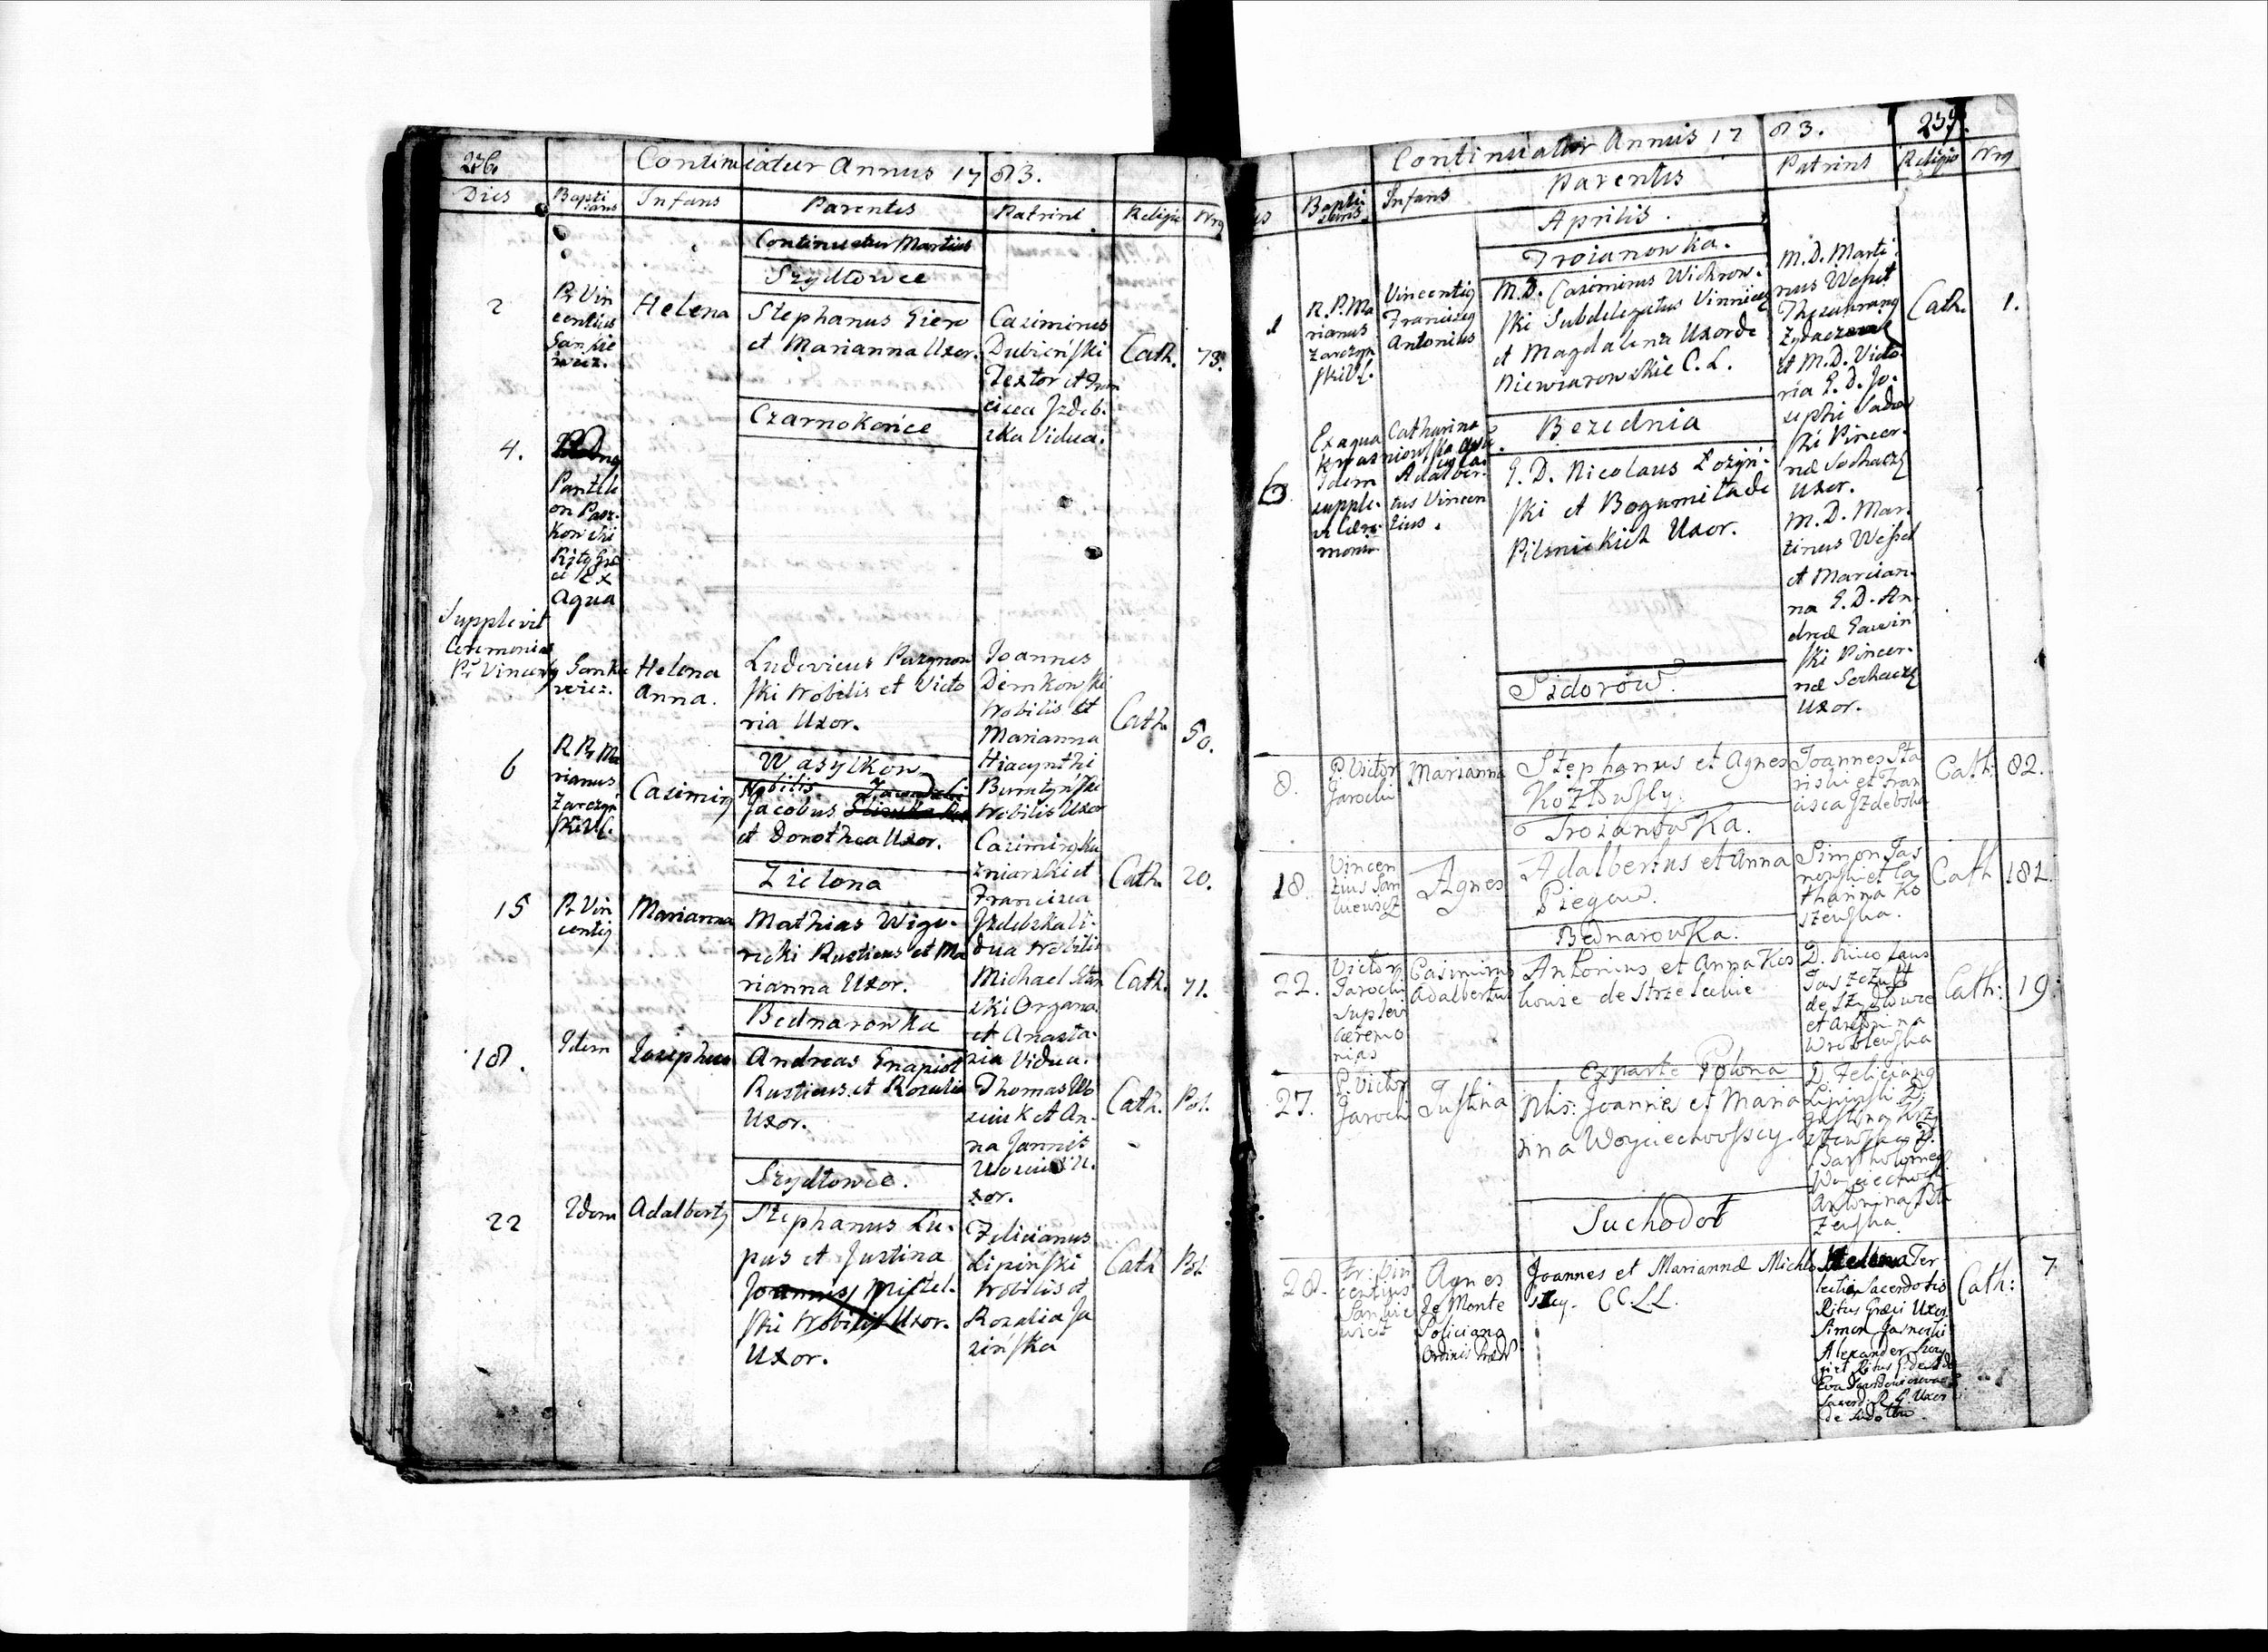 236.
Continuatur Annus 1783.
Dies
Infans
Parentes
Patrini
Religio
Nrg
Continuatur Martius
Szydłowce
2
Pr Vin
centius
Sankie
wicz.
Helena
Stephanus Gier
et Marianna Uxor.
Casimirus
Dubieński
Textor et Fran
cisca Jzdeb-
ska Vidua.
Cath.
73.
Czarnokońce
4.
Pantele
on Pasz-
kowski
Ex
Aqua
Supplevit
Ceremonias
Pr Vincenty Sankie
wicz.
Helena
Anna.
Ludovicus
ski Nobilis et Victo
ria Uxor.
Joannes
Demkowski
Nobilis et
Marianna
Hiacynthi
Nobilis Uxor
Cath.
50.
Wasylkow
6
R. Pr Ma
rianus
Zarczyń
ski
Casimirg
Nobilis
Jacobus
et Dorothea Uxor.
Casimirg Ku
zniarski et
Francisca
Jzdebska Vi-
dua Nobilis
Cath.
20.
Zielona
15
Pr Vin
centy
Marianna
Mathias Wigu-
Rusticus et Ma
rianna Uxor.
Michael Stan
ski Organa.
et Anasta-
sia Vidua.
Cath.
71.
Bednarowka
18.
Idem
Josephus
Andreas Gnapiot
Rusticus et Rosalia
Uxor.
Thomas Wo
ziuk et An-
na
xor.
Cath.
Pol.
Szydłowce.
22
Idem
Adalbertg
Stephanus Lu-
pus et Justina
Joannis Mistel-
ski Nobilis Uxor.
Uxor.
Felicianus
Lipiński
Nobilis et
Rozalia Ja
sińska
Cath
Pol.
237.
Continuatur Annus 1783.
Infans
Parentes
Patrini
Religio
Nrg
Aprilis.
Troianowka.
1
R. P. Ma
rianus
Zarczyń
ski
Vincentig
Franciscg
Antonius
M.D. Casimirus Wichrow-
ski Subdelegatus Vinniceg
et Magdalena Uxor de
Niewiarowskie C. L.
M.D. Marti-
nus Wessel
et M.D. Victo
ria G. D. Jo-
sephi Sadow
ski Pincer-
næ Sochacz
Uxor.
Cath.
1.
Bezednia
6
Ex aqua
Catharina
Idem
supple-
vi Cære-
monia
Adalber-
tus Vincen
tius.
G. D. Nicolaus Łożyń-
ski et Bogumiła de
Pilsnickich Uxor.
M. D. Mar-
tinus Wessel
et Marian-
na G. D. An-
dreæ Gawin
ski Pincer-
næ Sochacz
Uxor.
Sidorów.
8.
P. Victor
Jarocki
Marianna
Stephanus et Agnes
Joannes Sta
niski et Fran
cisca Jzdebska
Cath:
82.
Troianowka.
18.
Vincen
tius San
kiewicz
Agnes
Adalbertus et Anna
Piegow.
Simon Jas
noski et Ca
tharina Ko
szewska.
Cath
182.
Bednarowka.
22.
Victor
Jarocki
Suplevi
cæremo
nias
Casimirus
Adalbertus
Antonius et Anna Kos
de Strzeleckie
D. Nicolaus
de Szydłowce
et Antonina
Wroblewska
Cath:
19.
ex parte Polona
27.
P. Victor
Jarocki
Justina
Nblis: Joannes et Maria
nna Woyciechowscy.
D. Feliciang
Lipinski
Bartholomeg
Woyciechowski
Antonina
Suchodoł
28.
Fr: Vin
centius
Sankie
wicz
Agnes
de Monte
Policiano
Ordinis Præd
Joannes et Mariannæ Michl
CC.LL.
Helena Ter
lecka Sacerdotis
Ritus Græci Uxor
Simon Jasnoski
Alexander
Cath:
7